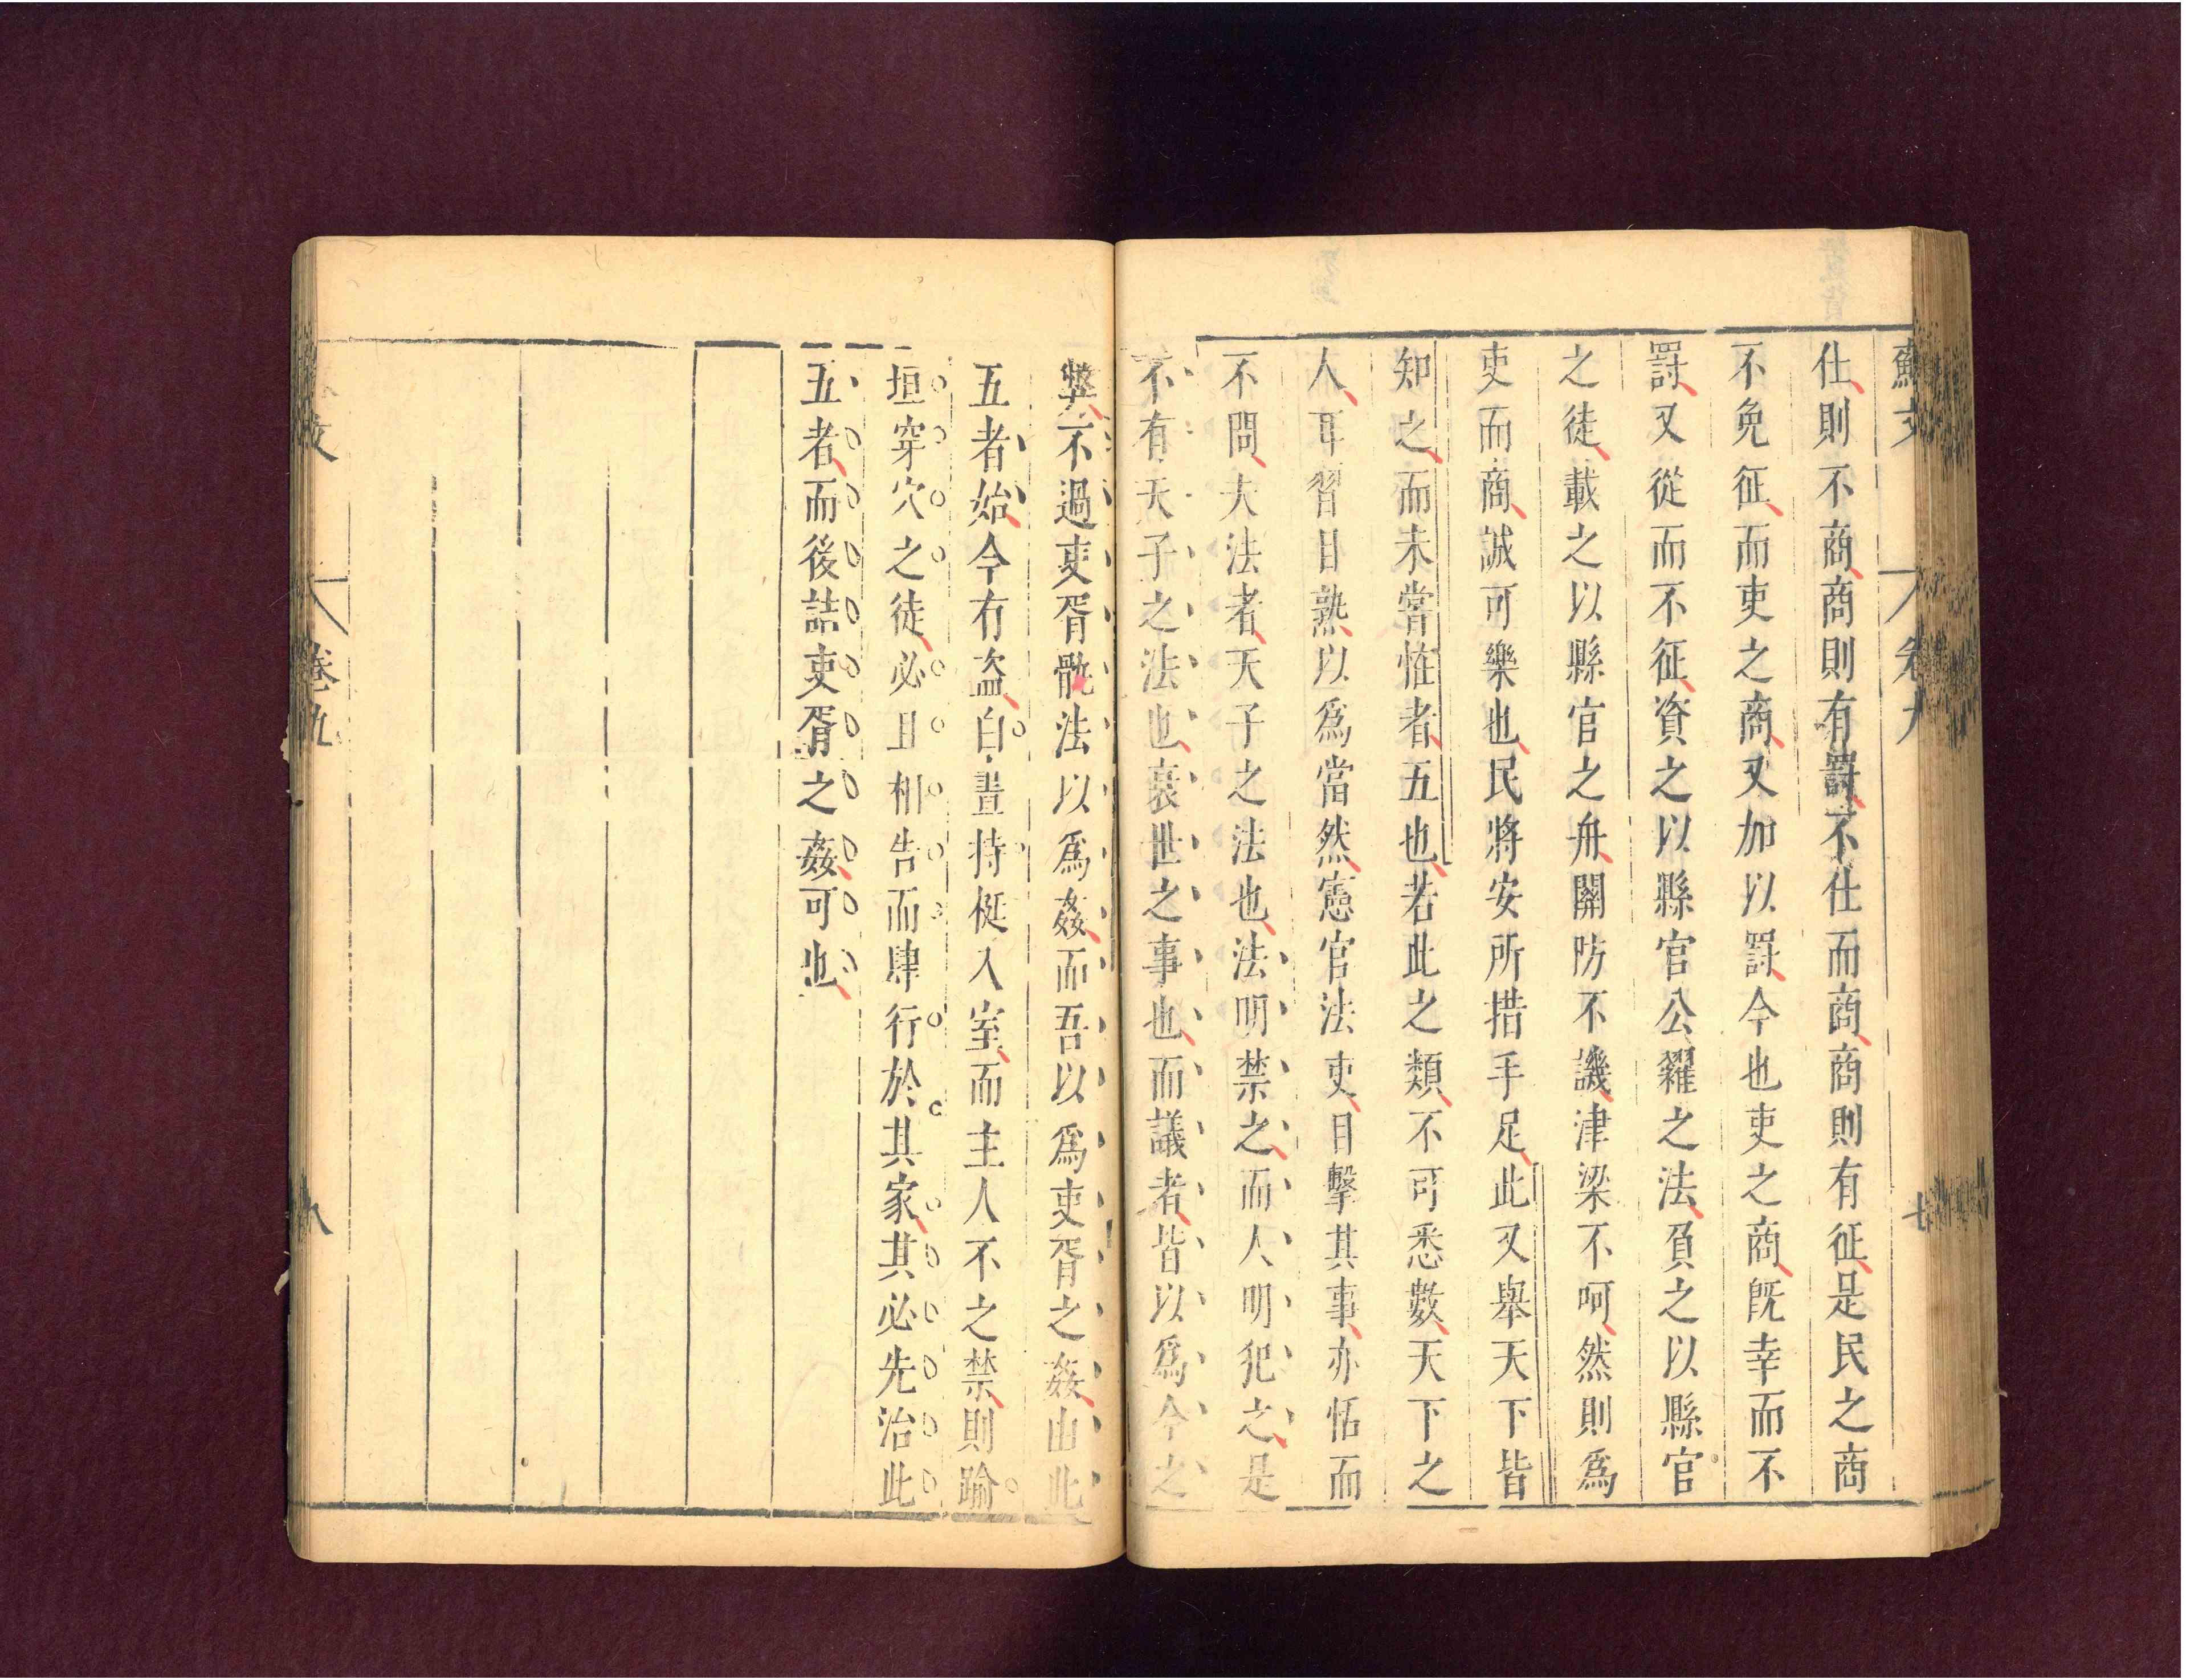 蘇文 卷九 七
仕則不商商則有罰不仕而商商則有征是民之商
不免征而吏之商又加以罰今也吏之商旣幸而不
罰又從而不征資之以縣官公糴之法負之以縣官
之徒載之以縣官之舟關防不譏津梁不呵然則爲
吏而商誠可樂也民將安所措手足此又舉天下皆
知之而未嘗怪者五也若此之類不可悉數天下之
人耳習目熟以爲當然憲官法吏目擊其事亦恬而
不問夫法者天子之法也法明禁之而人明犯之是
不有天子之法也衰世之事也而議者皆以爲今之
弊不過吏胥骫法以爲姦而吾以爲吏胥之姦由此
五者始今有盜白晝持梃入室而主人不之禁則踰
垣穿穴之徒必且相告而肆行於其家其必先治此
五者而後詰吏胥之姦可也
文 卷九 八